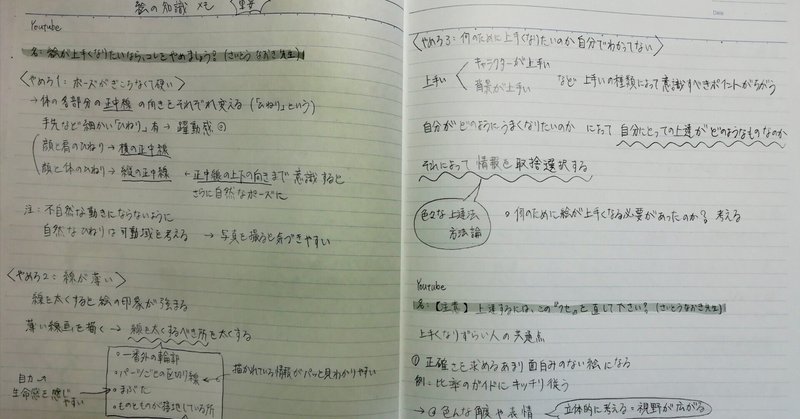 絵の知識 メモ
Youtube
名: 絵が上手くなりたいなら、コレをやめましょう? (さいとうなおき先生)
〈やめろ1: ポーズがぎこちなくて硬い〉
→体の各部分の正中線の向きをそれぞれ変える (「ひねり」という)
手先など細かい「ひねり」有 → 躍動感
顔と肩のひねり→横の正中線
顔と体のひねり→縦の正中線 ← 正中線の上下の向きまで意識すると
さらに自然なポーズに
注: 不自然な動きにならないように
自然なひねりは可動域を考える → 写真を撮ると気づきやすい
〈やめろ2: 線が薄い〉
線を太くすると絵の印象が強まる
薄い線画を描く → 線を太くするべき所を太くする
○一番外の輪郭
○パーツごとの区切り線 ← 描かれている情報がパッと見わかりやすい
○まぶた
○ものとものが接地している所
目力
生命感を感じやすい
〈やめろ3: 何のために上手くなりたいのか自分でわかってない〉
上手い
キャラクターが上手い
背景が上手い
など 上手いの種類によって意識すべきポイントがちがう
自分がどのようにうまくなりたいのか によって 自分にとっての上達がどのようなものなのか
それによって 情報を取捨選択する
色々な上達法
方法論
○何のために絵が上手くなる必要があったのか? 考える
Youtube
名: 【注意】上達するには、この"クセ"を直して下さい? (さいとうなおき先生)
上手くなりずらい人の共通点
① 正確さを求めるあまり面白みのない絵になる
例: 比率のガイドにキッチリ従う
→ 色んな角度や表情
立体的に考える: 視野が広がる